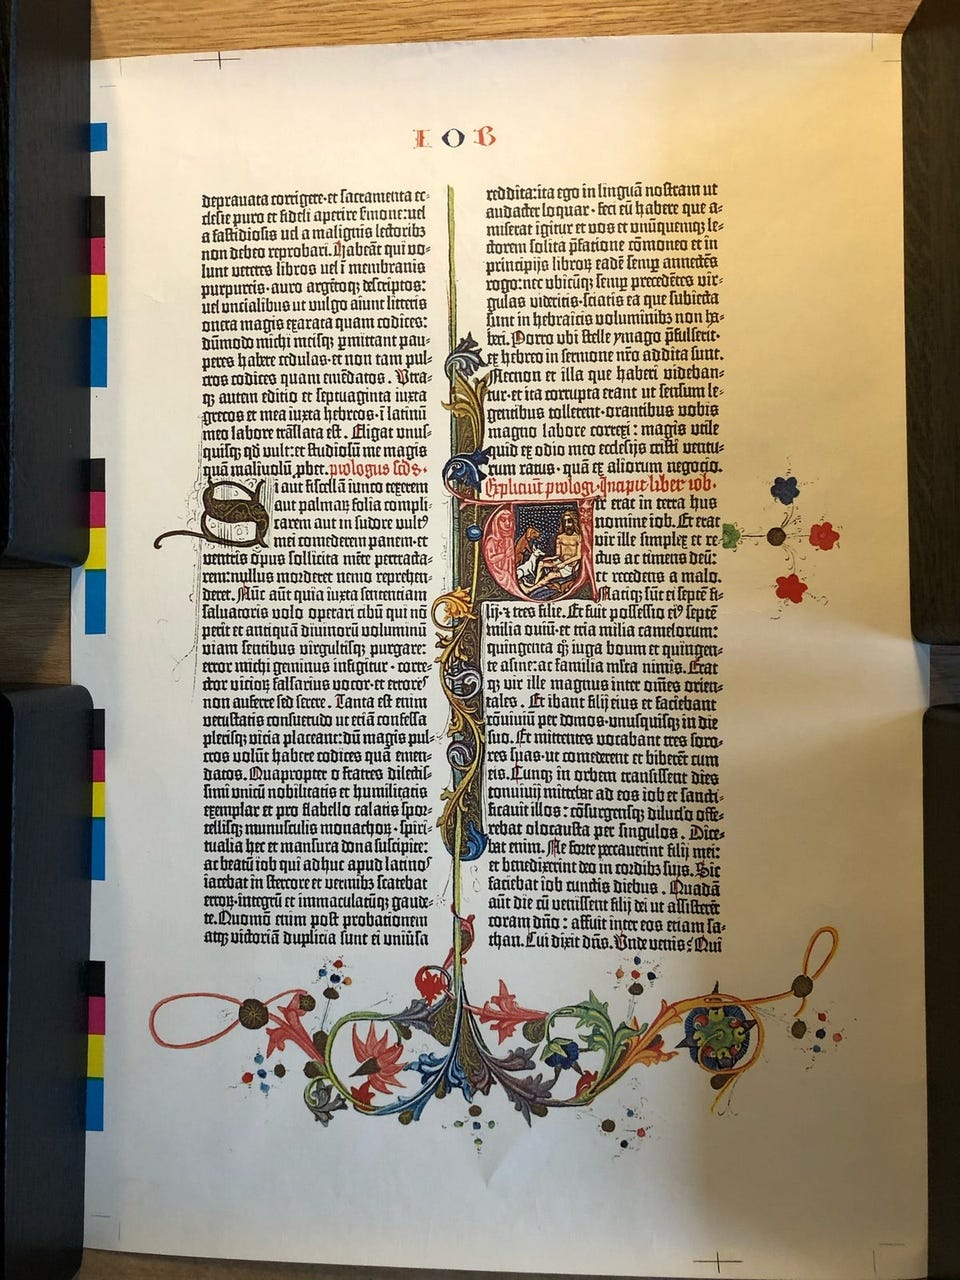 IOB
deprauata corrigere·et sacramenta ec-
clesie puro et fideli aperire sermone:uel
a fastidiosis uel a malignis lectoribꝫ
non debeo reprobari. Habeāt qui vo-
lunt veteres libros uel ī membranis
purpureis·auro argētoqꝫ descriptos:
uel vncialibus ut vulgo aiunt litteris
onera magis exarata quam codices:
dūmodo michi meisqꝫ ꝑmittant pau-
peres habere cedulas·et non tam pul-
cros codices quam emēdatos. Vtra-
qꝫ autem editio et septuaginta iuxta
grecos et mea iuxta hebreos·ī latinū
meo labore trāslata est. Eligat vnus-
quisqꝫ qd vult:et studiosū me magis
quā maliuolū ꝓbet. prologus scds·
Si aut fiscellā iunco texerem
aut palmaꝝ folia compli-
carem aut in sudore vultꝰ
mei comederem panem·et
ventris opus sollicita mēte pertracta-
rem:nullus morderet nemo reprehen-
deret. Nūc aūt quia iuxta sententiam
saluatoris volo operari cibū qui nō
perit et antiquā diuinorū voluminū
viam sentibus virgultisqꝫ purgare:
error michi geminus infigitur·corre-
ctor vicioꝝ falsarius vocor·et erroreˢ
non auferre sed serere. Tanta est enim
vetustatis consuetudo ut etiā confessa
plerisqꝫ vicia placeant:dū magis pul-
cros volūt habere codices quā emen-
datos. Quapropter o fratres dilectis-
simi vnicū nobilitatis et humilitatis
exemplar et pro flabello calatis spor-
tellisqꝫ munusculis monachoꝝ·spiri-
tualia hec et mansura dona suscipite:
ac beatū iob qui adhuc apud latinoˢ
iacebat in stercore et vermibꝫ scatebat
erroꝝ·integrū et immaculatūqꝫ gaude-
te. Quomō enim post probationem
atqꝫ victoriā duplicia sunt ei vniūsa
reddita:ita ego in linguā nostram ut
audacter loquar·feci eū habere que a-
miserat igitur et vos et vnūquemqꝫ le-
ctorem solita p̄fatione cōmoneo et in
principijs libroꝝ eadē semꝑ annectēs
rogo:nec vbicūqꝫ semꝑ precedētes vir-
gulas videritis·sciatis ea que subiecta
sunt in hebraicis voluminibꝫ non ha-
beri. Porro vbi stelle ymago p̄fulserit·
ex hebreo in sermone nr̄o addita sunt.
Necnon et illa que haberi videban-
tur·et ita corrupta erant ut sensum le-
gentibus tollerent·orantibus vobis
magno labore correxi: magis vtile
quid ex odio meo ecclesijs cristi ventu-
rum ratus·quā ex aliorum negocio.
Expliciūt prologi·Incipit liber iob·
Vir erat in terra hus
nomine iob. Et erat
vir ille simplex et re-
ctus ac timens deū:
et recedens a malo.
Natiqꝫ sūt ei septē fi-
lij·⁊ tres filie. Et fuit possessio eiꝰ septē
milia ouiū·et tria milia camelorum:
quingenta qꝫ iuga boum et quingen-
te asine:ac familia mlta nimis. Erat
qꝫ vir ille magnus inter om̄es orien-
tales. Et ibant filij eius et faciebant
cōuiuiū per domos·vnusquisqꝫ in die
suo. Et mittentes vocabant tres soro-
res suas·ut comederent et biberēt cum
eis. Cunqꝫ in orbem transissent dies
conuiuij mittebat ad eos iob et sancti-
ficauit illos: cōsurgensqꝫ diluclo offe-
rebat olocausta per singulos. Dice-
bat enim. Ne forte peccauerint filij mei:
et benedixerint deo in cordibꝫ suis. Sic
faciebat iob cunctis diebus. Quadā
aūt die cū venissent filij dei ut assisterēt
coram dn̄o: affuit inter eos etiam sa-
than. Cui dixit dn̄s. Vnde venis? Qui